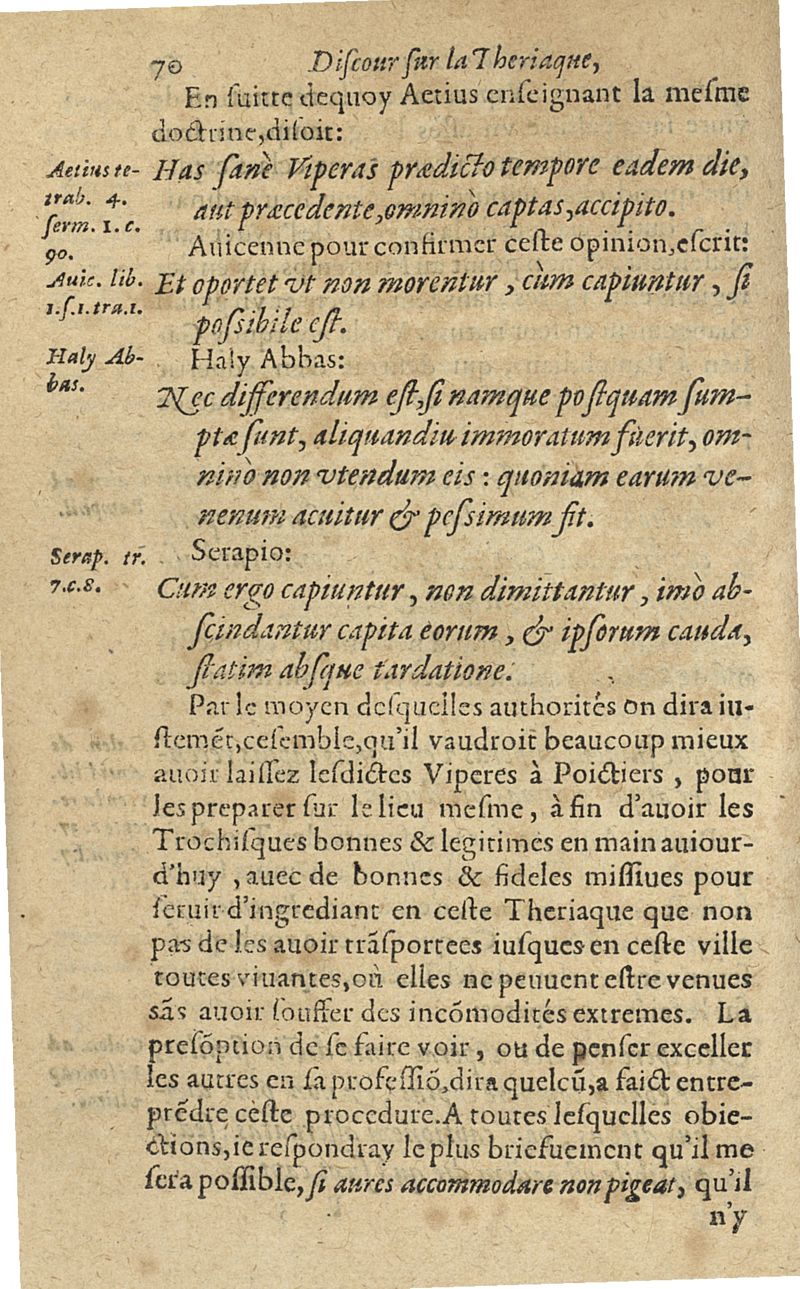 70 Diſcour ſur la Theriaque,
En ſuitte dequoy Aetius enſeignant la meſme
doctrine, diſoit:
Aetius te-
trab. 4.
ſerm. 1. c.
90.
Has ſanè Viperas prædicto tempore eadem die,
aut præcedente, omninò captas, accipito.
Auicenne pour confirmer ceſte opinion, eſcrit:
Auic. lib.
1.ſ.1.tra.1.
Et oportet vt non morentur, cùm capiuntur, ſi
poſsibile eſt.
Haly Ab-
bas.
Haly Abbas:
Nec differendum eſt, ſi namque poſtquam ſum-
ptæ ſunt, aliquandiu immoratum fuerit, om-
ninò non vtendum eis: quoniam earum ve-
nenum acuitur & peſsimum fit.
Serap. tr.
7.c.8.
Serapio:
Cum ergo capiuntur, non dimittantur, imò ab-
ſcindantur capita eorum, & ipſorum cauda,
ſtatim abſque tardatione.
Par le moyen deſquelles authorités on dira iu-
ſtemẽt, ce ſemble, qu'il vaudroit beaucoup mieux
auoir laiſſez leſdictes Viperes à Poictiers, pour
les preparer ſur le lieu meſme, à fin d'auoir les
Trochiſques bonnes & legitimes en main auiour-
d'huy, auec de bonnes & fideles miſſiues pour
ſeruir d'ingrediant en ceſte Theriaque que non
pas de les auoir trãſportees iuſques en ceſte ville
toutes viuantes, où elles ne peuuent eſtre venues
sãs auoir ſouffer des incõmodités extremes. La
preſõption de ſe faire voir, ou de penſer exceller
les autres en ſa profeſſiõ, dira quelcũ, a faict entre-
prẽdre ceſte procedure. A toutes leſquelles obie-
ctions, ie reſpondray le plus briefuement qu'il me
ſera poſſible, ſi aures accommodare non pigeat, qu'il
n'y